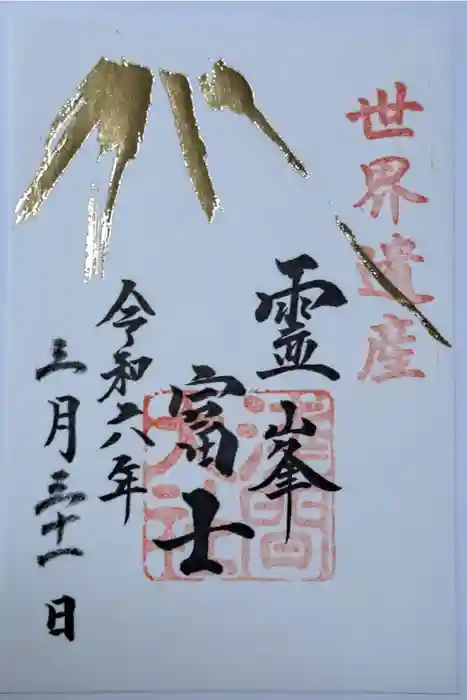 世界遺産
霊峯
富士
令和六年
三月三十一日
淺間
大社